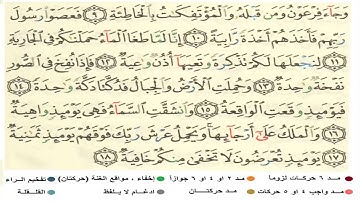 وَجَآءَ فِرْعَوْنُ وَمَن قَبْلَهُۥ وَٱلْمُؤْتَفِكَٰتُ بِٱلْخَاطِئَةِ ٩ فَعَصَوْا۟ رَسُولَ
رَبِّهِمْ فَأَخَذَهُمْ أَخْذَةً رَّابِيَةً ١٠ إِنَّا لَمَّا طَغَا ٱلْمَآءُ حَمَلْنَٰكُمْ فِى ٱلْجَارِيَةِ
١١ لِنَجْعَلَهَا لَكُمْ تَذْكِرَةً وَتَعِيَهَآ أُذُنٌ وَٰعِيَةٌ ١٢ فَإِذَا نُفِخَ فِى ٱلصُّورِ
نَفْخَةٌ وَٰحِدَةٌ ١٣ وَحُمِلَتِ ٱلْأَرْضُ وَٱلْجِبَالُ فَدُكَّتَا دَكَّةً وَٰحِدَةً ١٤
فَيَوْمَئِذٍ وَقَعَتِ ٱلْوَاقِعَةُ ١٥ وَٱنشَقَّتِ ٱلسَّمَآءُ فَهِىَ يَوْمَئِذٍ وَاهِيَةٌ
١٦ وَٱلْمَلَكُ عَلَىٰٓ أَرْجَآئِهَا وَيَحْمِلُ عَرْشَ رَبِّكَ فَوْقَهُمْ يَوْمَئِذٍ ثَمَٰنِيَةٌ
١٧ يَوْمَئِذٍ تُعْرَضُونَ لَا تَخْفَىٰ مِنكُمْ خَافِيَةٌ ١٨
مد ٦ حركات لزوماً مد ٢ او ٤ او ٦ جوازاً إخفاء، ومواقع الغنة (حركتان) تفخيم الراء
مد واجب ٤ او ٥ حركات مد حركتان ادغام، وما لا يلفظ القلقلة